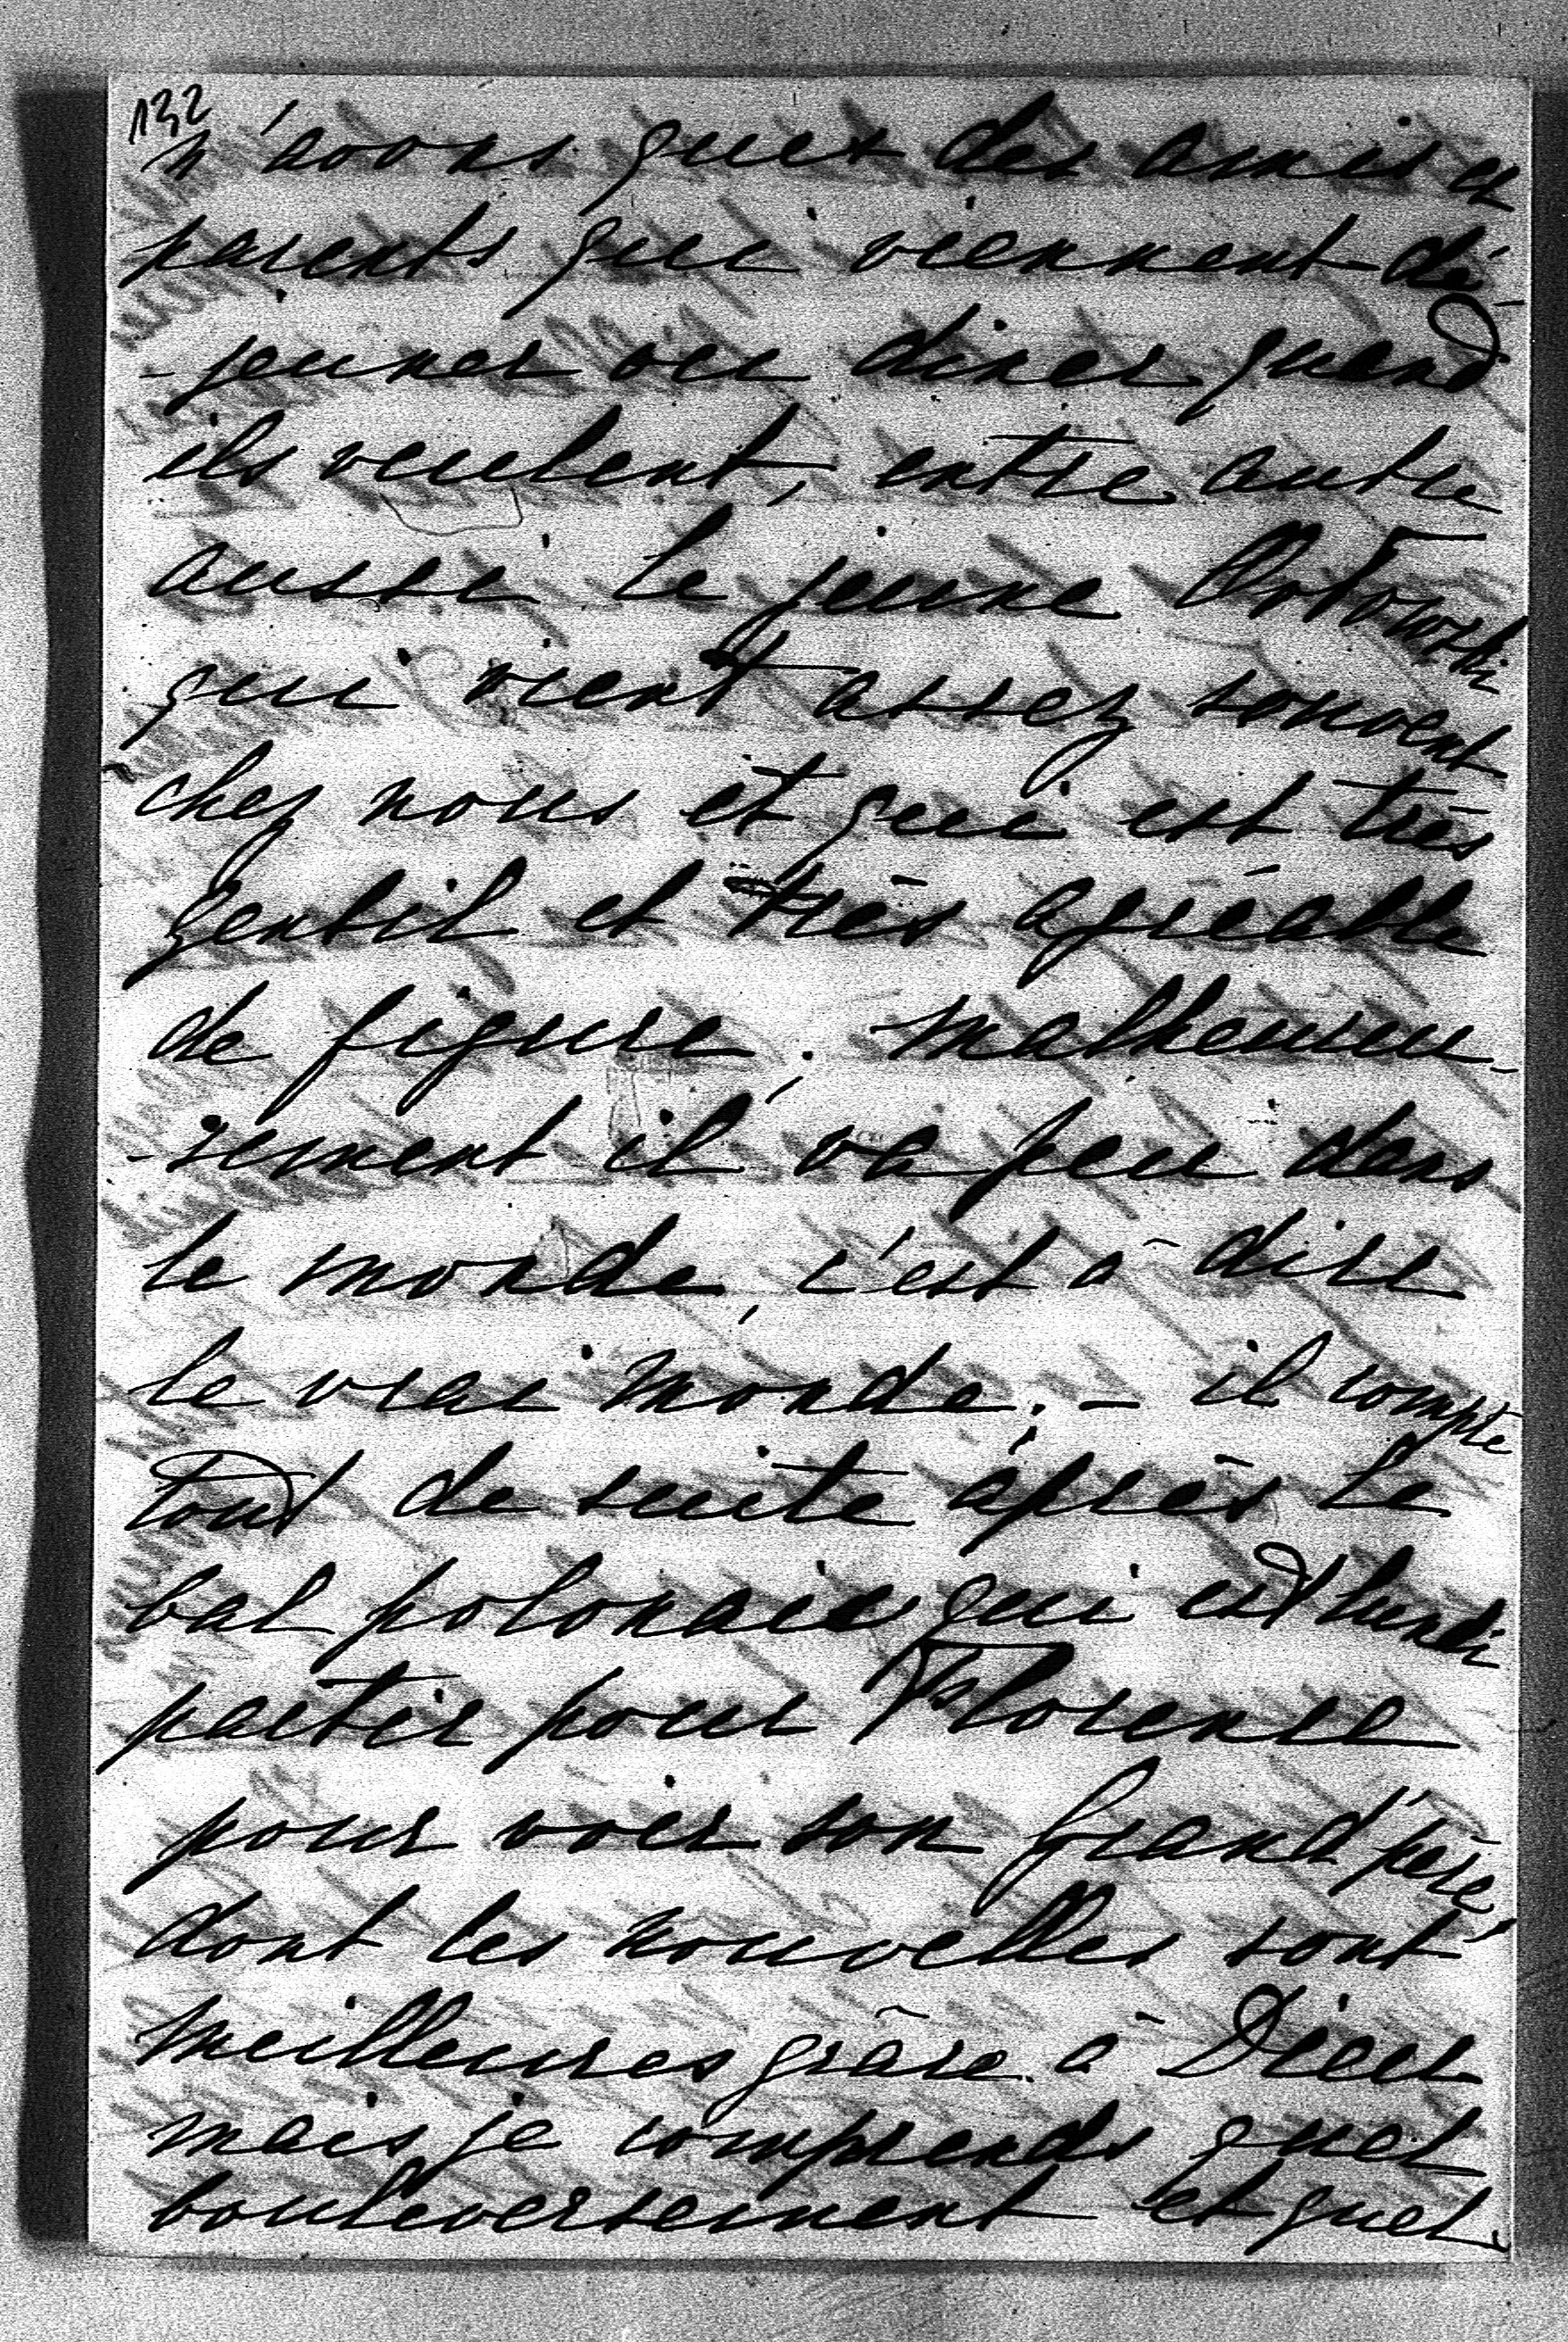 132
n'avons que des amis et
parents qui viennent dé-
-jeuner ou diner quand
ils veulent, entre autre
aussi le jeune
qui vient assez souvent
chez nous et qui est très
gentil et très agréable
de figure; malheureu-
-sement il va peu dans
le monde, c'est à dire
le vrai monde; - il compte
tout de suite après le
bal polonais qui est lundi
partir pour Florence
pour voir son Grand'père,
dont les nouvelles sont
meilleures grâce à Dieu
mais je comprends quel
bouleversement et quel